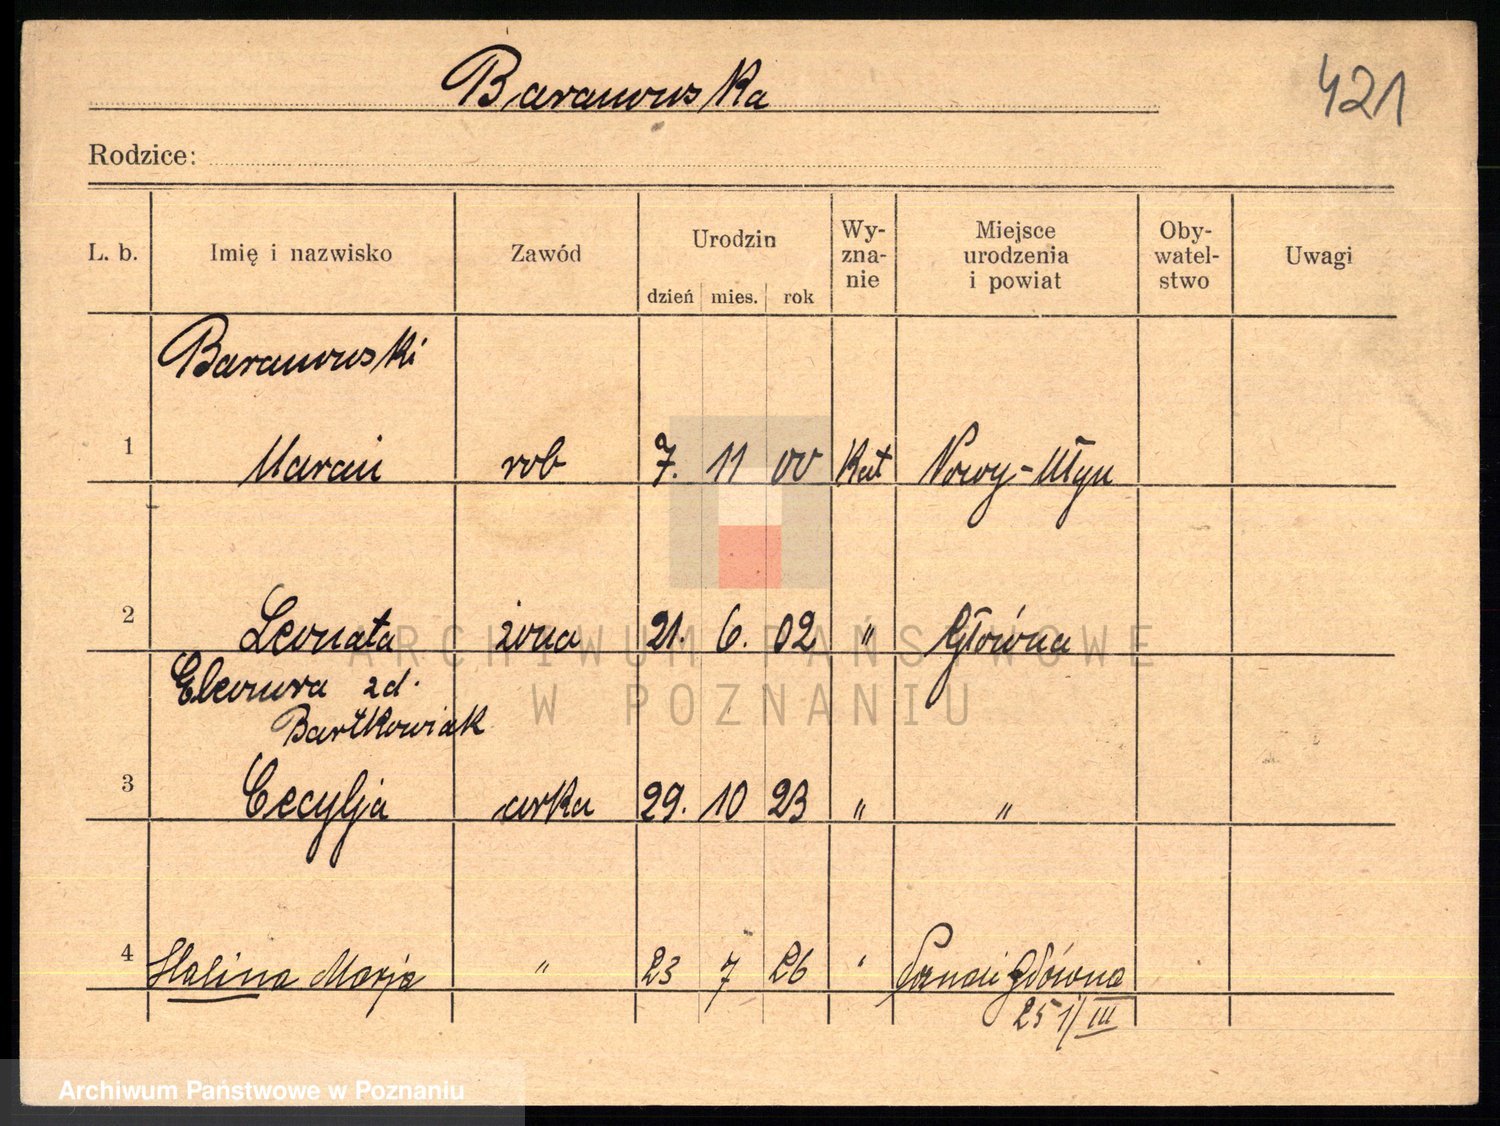 Baranowska
421
Rodzice:
L. b. Imię i nazwisko Zawód Urodzin dzień mies. rok Wy-zna-nie Miejsce urodzenia i powiat Oby-watel-stwo Uwagi
Baranowski
1 Marcin rob 7. 11 00 Kat Nowy-Młyn
2 Leonata żona 21. 6. 02 " Główna
Eleonora zd.
Bartkowiak
3 Cecylja córka 29. 10 23 " "
4 Halina Marja " 23 7 26 " Główna
251/III
ARCHIWUM PAŃSTWOWE
W POZNANIU
Archiwum Państwowe w Poznaniu